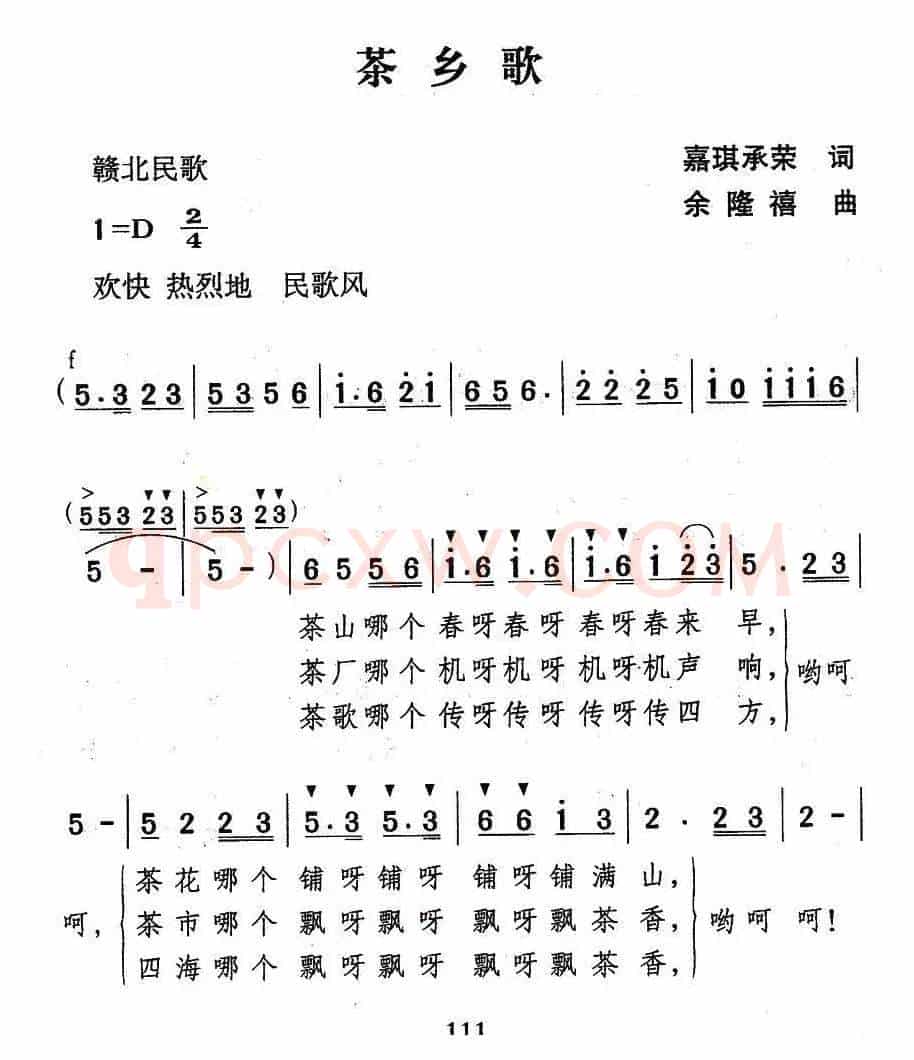 茶乡歌
赣北民歌
嘉琪承荣 词
1=D 2/4
余隆禧 曲
欢快 热烈地 民歌风
f
(5.3 2 3 | 5 3 5 6 | i.6 2 i | 6 5 6. | 2 2 2 5 | i 0 i i i 6 |
(5 5 3 2 3 | 5 5 3 2 3)
5 - | 5 - ) | 6 5 5 6 | i.6 i.6 | i.6 i 2 3 | 5 . 2 3 |
茶山哪个 春呀春呀 春呀春来 早,
茶厂哪个 机呀机呀 机呀机声 响, 哟呵
茶歌哪个 传呀传呀 传呀传四 方,
5 - | 5 2 2 3 | 5.3 5.3 | 6 6 i 3 | 2 . 2 3 | 2 - |
茶花哪个 铺呀铺呀 铺呀铺满 山,
呵, 茶市哪个 飘呀飘呀 飘呀飘茶 香, 哟呵 呵!
四海哪个 飘呀飘呀 飘呀飘茶 香,
111
qpcxw.COM